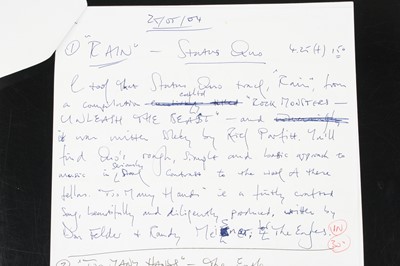 25/05/04
① "RAIN" — Status Quo 4.25(f) 1
I took this Status Quo track, "Rain", from
a compilation entitled "ROCK MONSTERS —
UNLEASH THE BEAST" — and
it was written solely by Rick Parfitt. You'll
find Quo's rough, simple and basic approach to
music in contrast to the rest of these
fellas. "Too Many Hands" is a firstly contrast
Song, beautifully and diligently produced, written by
Don Felder & Randy Meisner, of "The Eagles".
IN
② "TOO MANY HANDS" — The Eagles